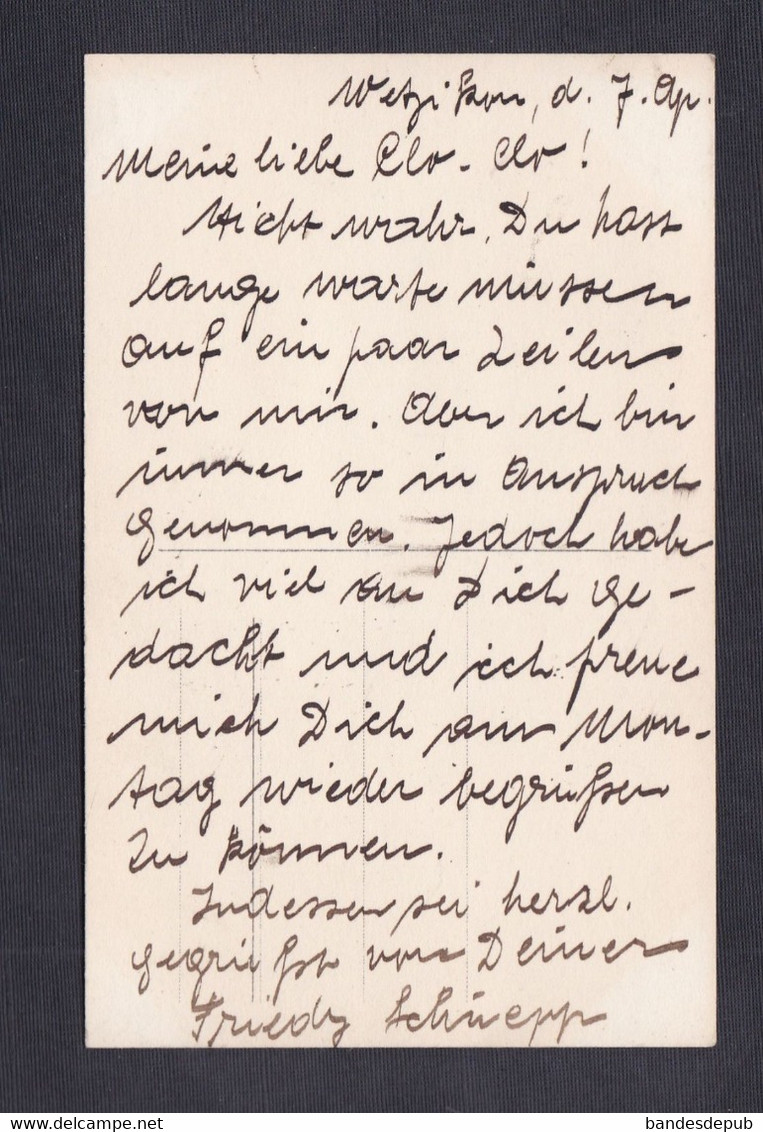 Wetzikon, d. 7. Ap.
Meine liebe Clo-Clo!
Nicht wahr, Du hast
lange warte müssen
auf ein paar Zeilen
von mir. Aber ich bin
immer so in Anspruch
genommen. Jedoch habe
ich viel an Dich ge-
dacht und ich freue
mich Dich am Mon-
tag wieder begrüßen
zu können.
Indessen sei herzl.
gegrüßt von Deiner
Friedy Schnepp
delcampe.net
bandesdepub